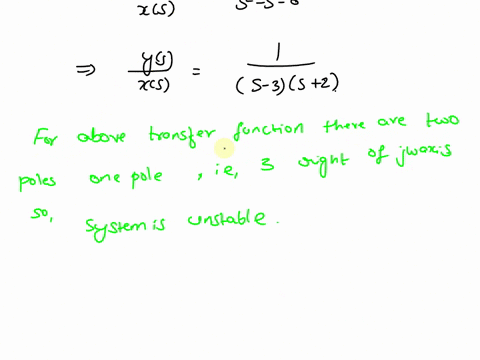 x(s) s²-s-6
⇒ y(s)/x(s) = 1/((s-3)(s+2))
For above transfer function there are two
poles one pole , i.e, 3 right of jw axis
so,
system is unstable.